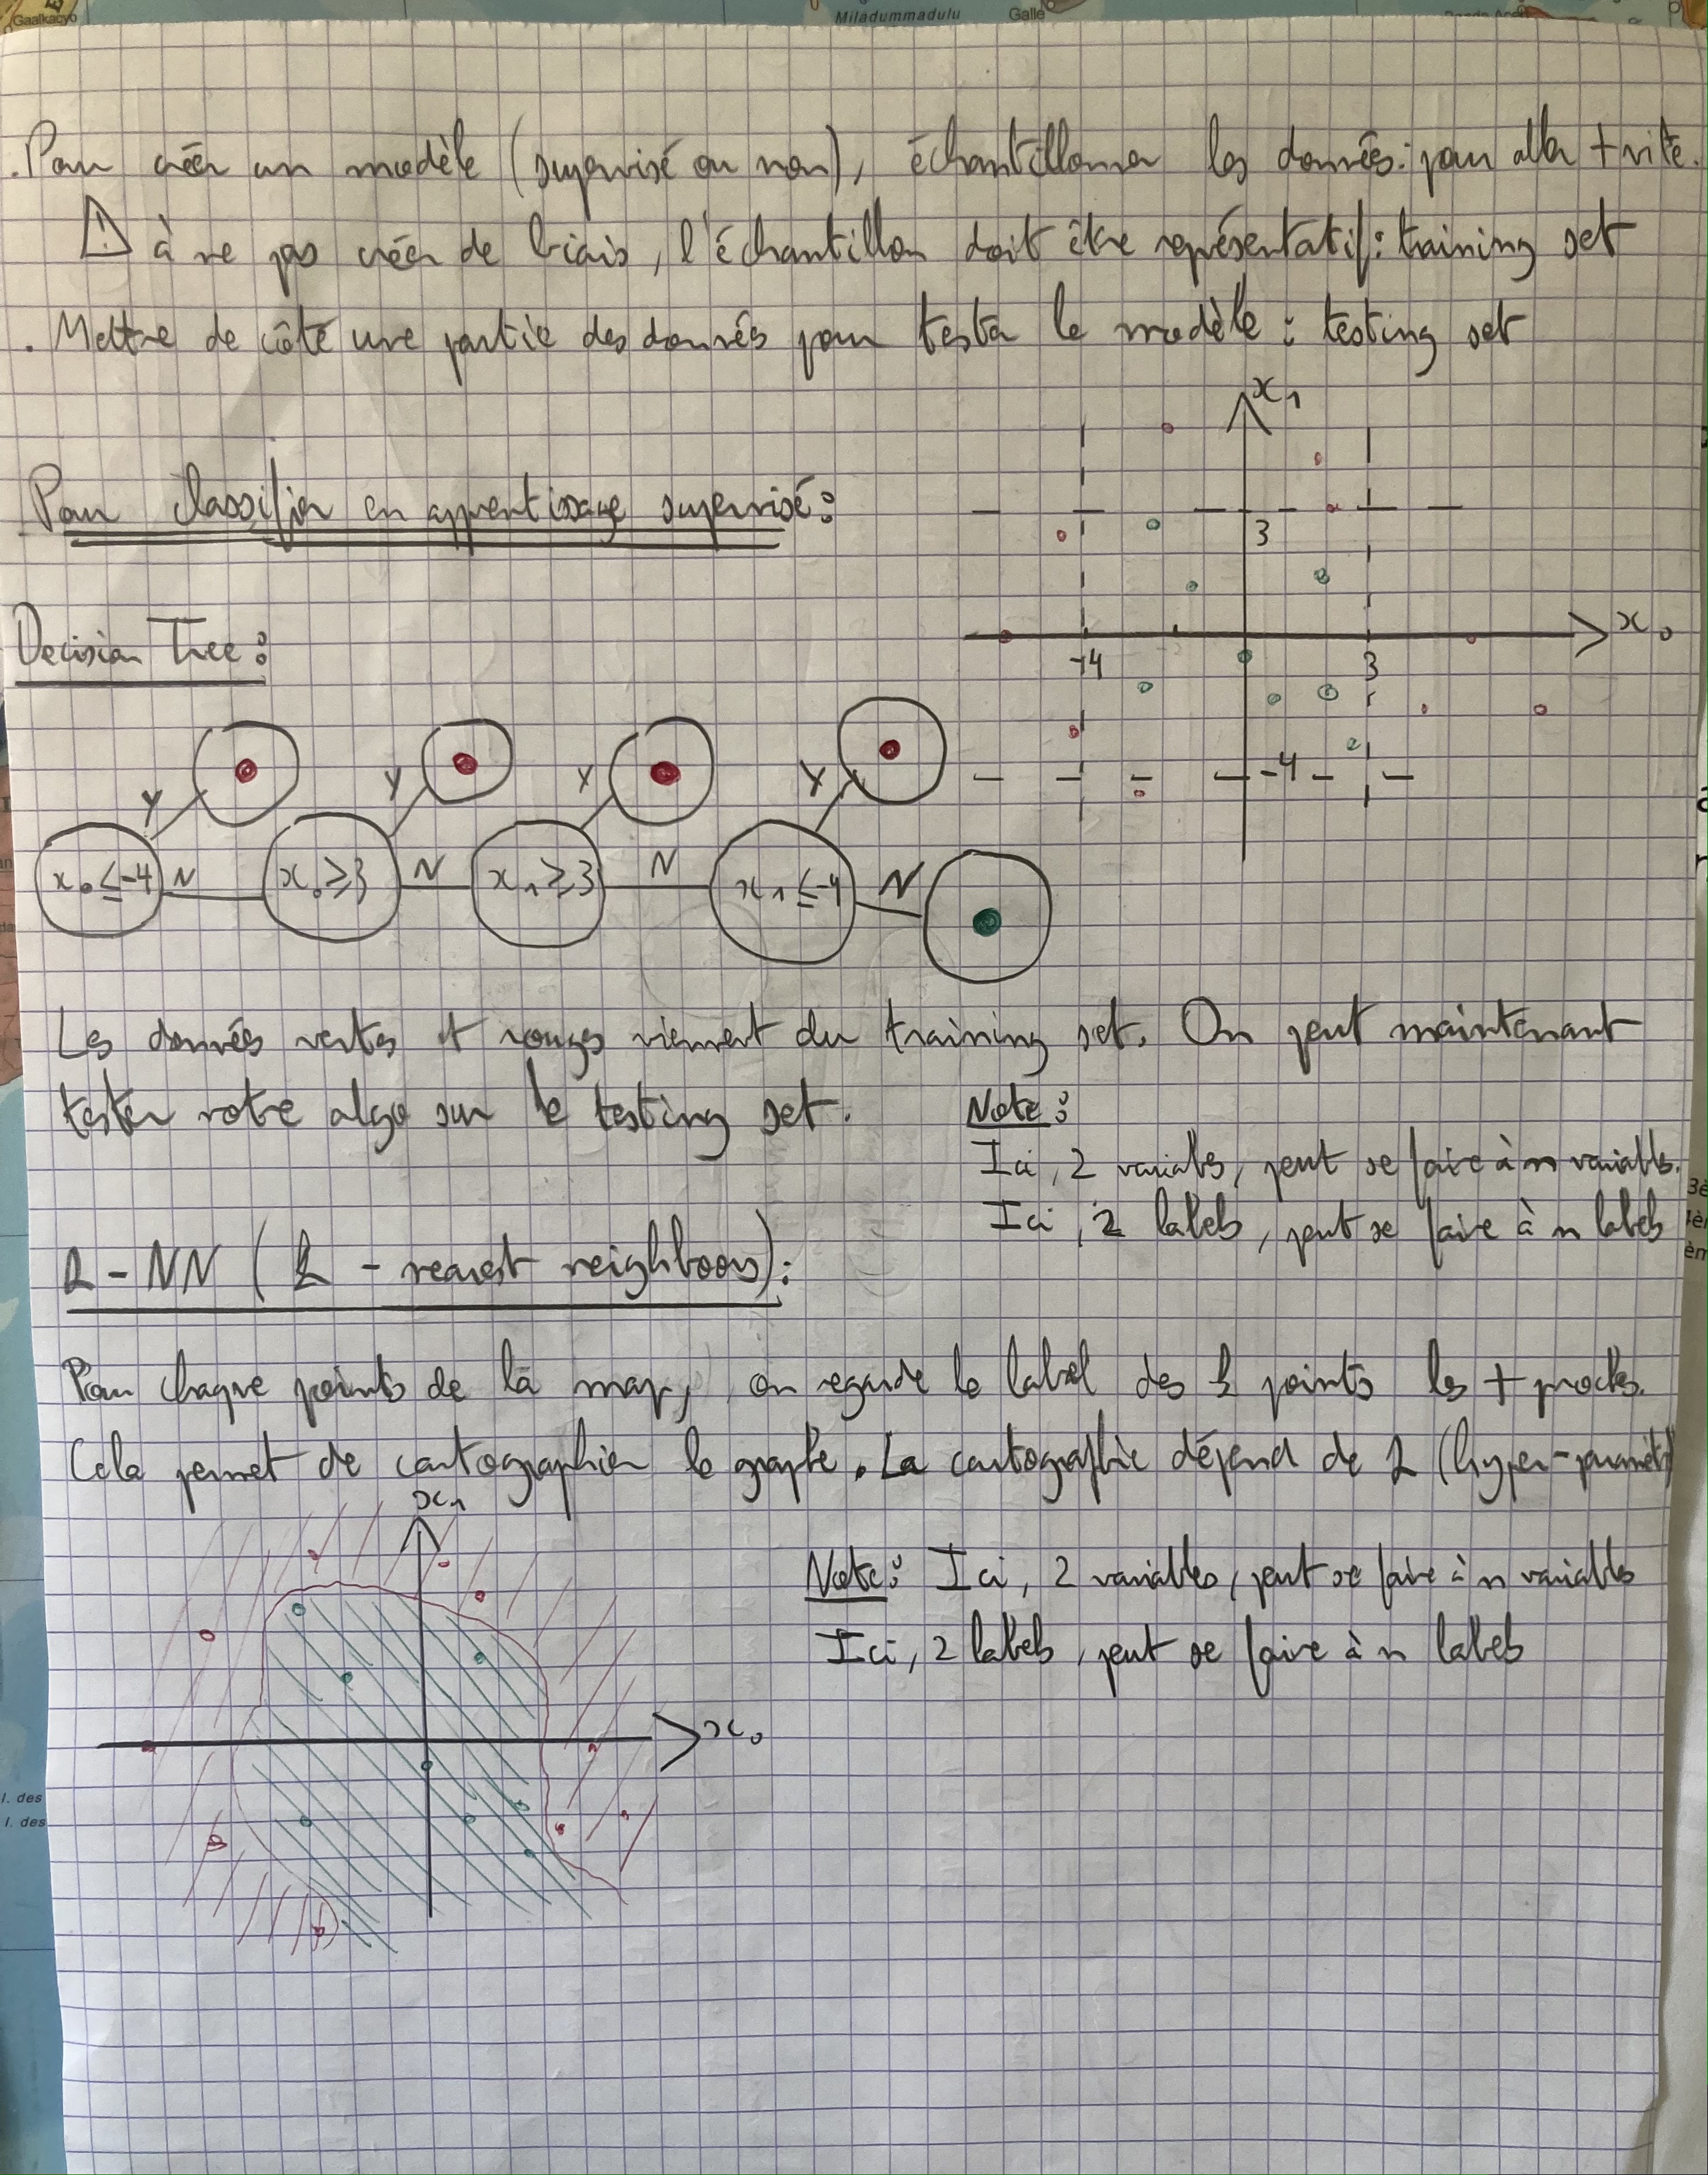 Gaalkacyo
Miladummadulu
Galle
. Pour créer un modèle (supervisé ou non), échantillonner les données : pour aller + vite.
⚠ à ne pas créer de biais, l'échantillon doit être représentatif : training set
. Mettre de côté une partie des données pour tester le modèle : testing set
x₁
Pour classifier en apprentissage supervisé :
3
Decision Tree :
x₀
-4
3
-4
Y
Y
Y
Y
x₀ ≤ -4
N
x₀ ≥ 3
N
x₁ ≥ 3
N
x₁ ≤ -4
N
Les données vertes et rouges viennent du training set. On peut maintenant
tester notre algo sur le testing set.
Note :
Ici, 2 variables, peut se faire à n variables.
Ici, 2 labels, peut se faire à n labels
k-NN (k - nearest neighboors) :
Pour chaque points de la map, on regarde le label des k points les + proches.
Cela permet de cartographier le graphe. La cartographie dépend de k (hyper-paramètre)
x₁
Note : Ici, 2 variables, peut se faire à n variables
Ici, 2 labels, peut se faire à n labels
x₀
I. des
I. des